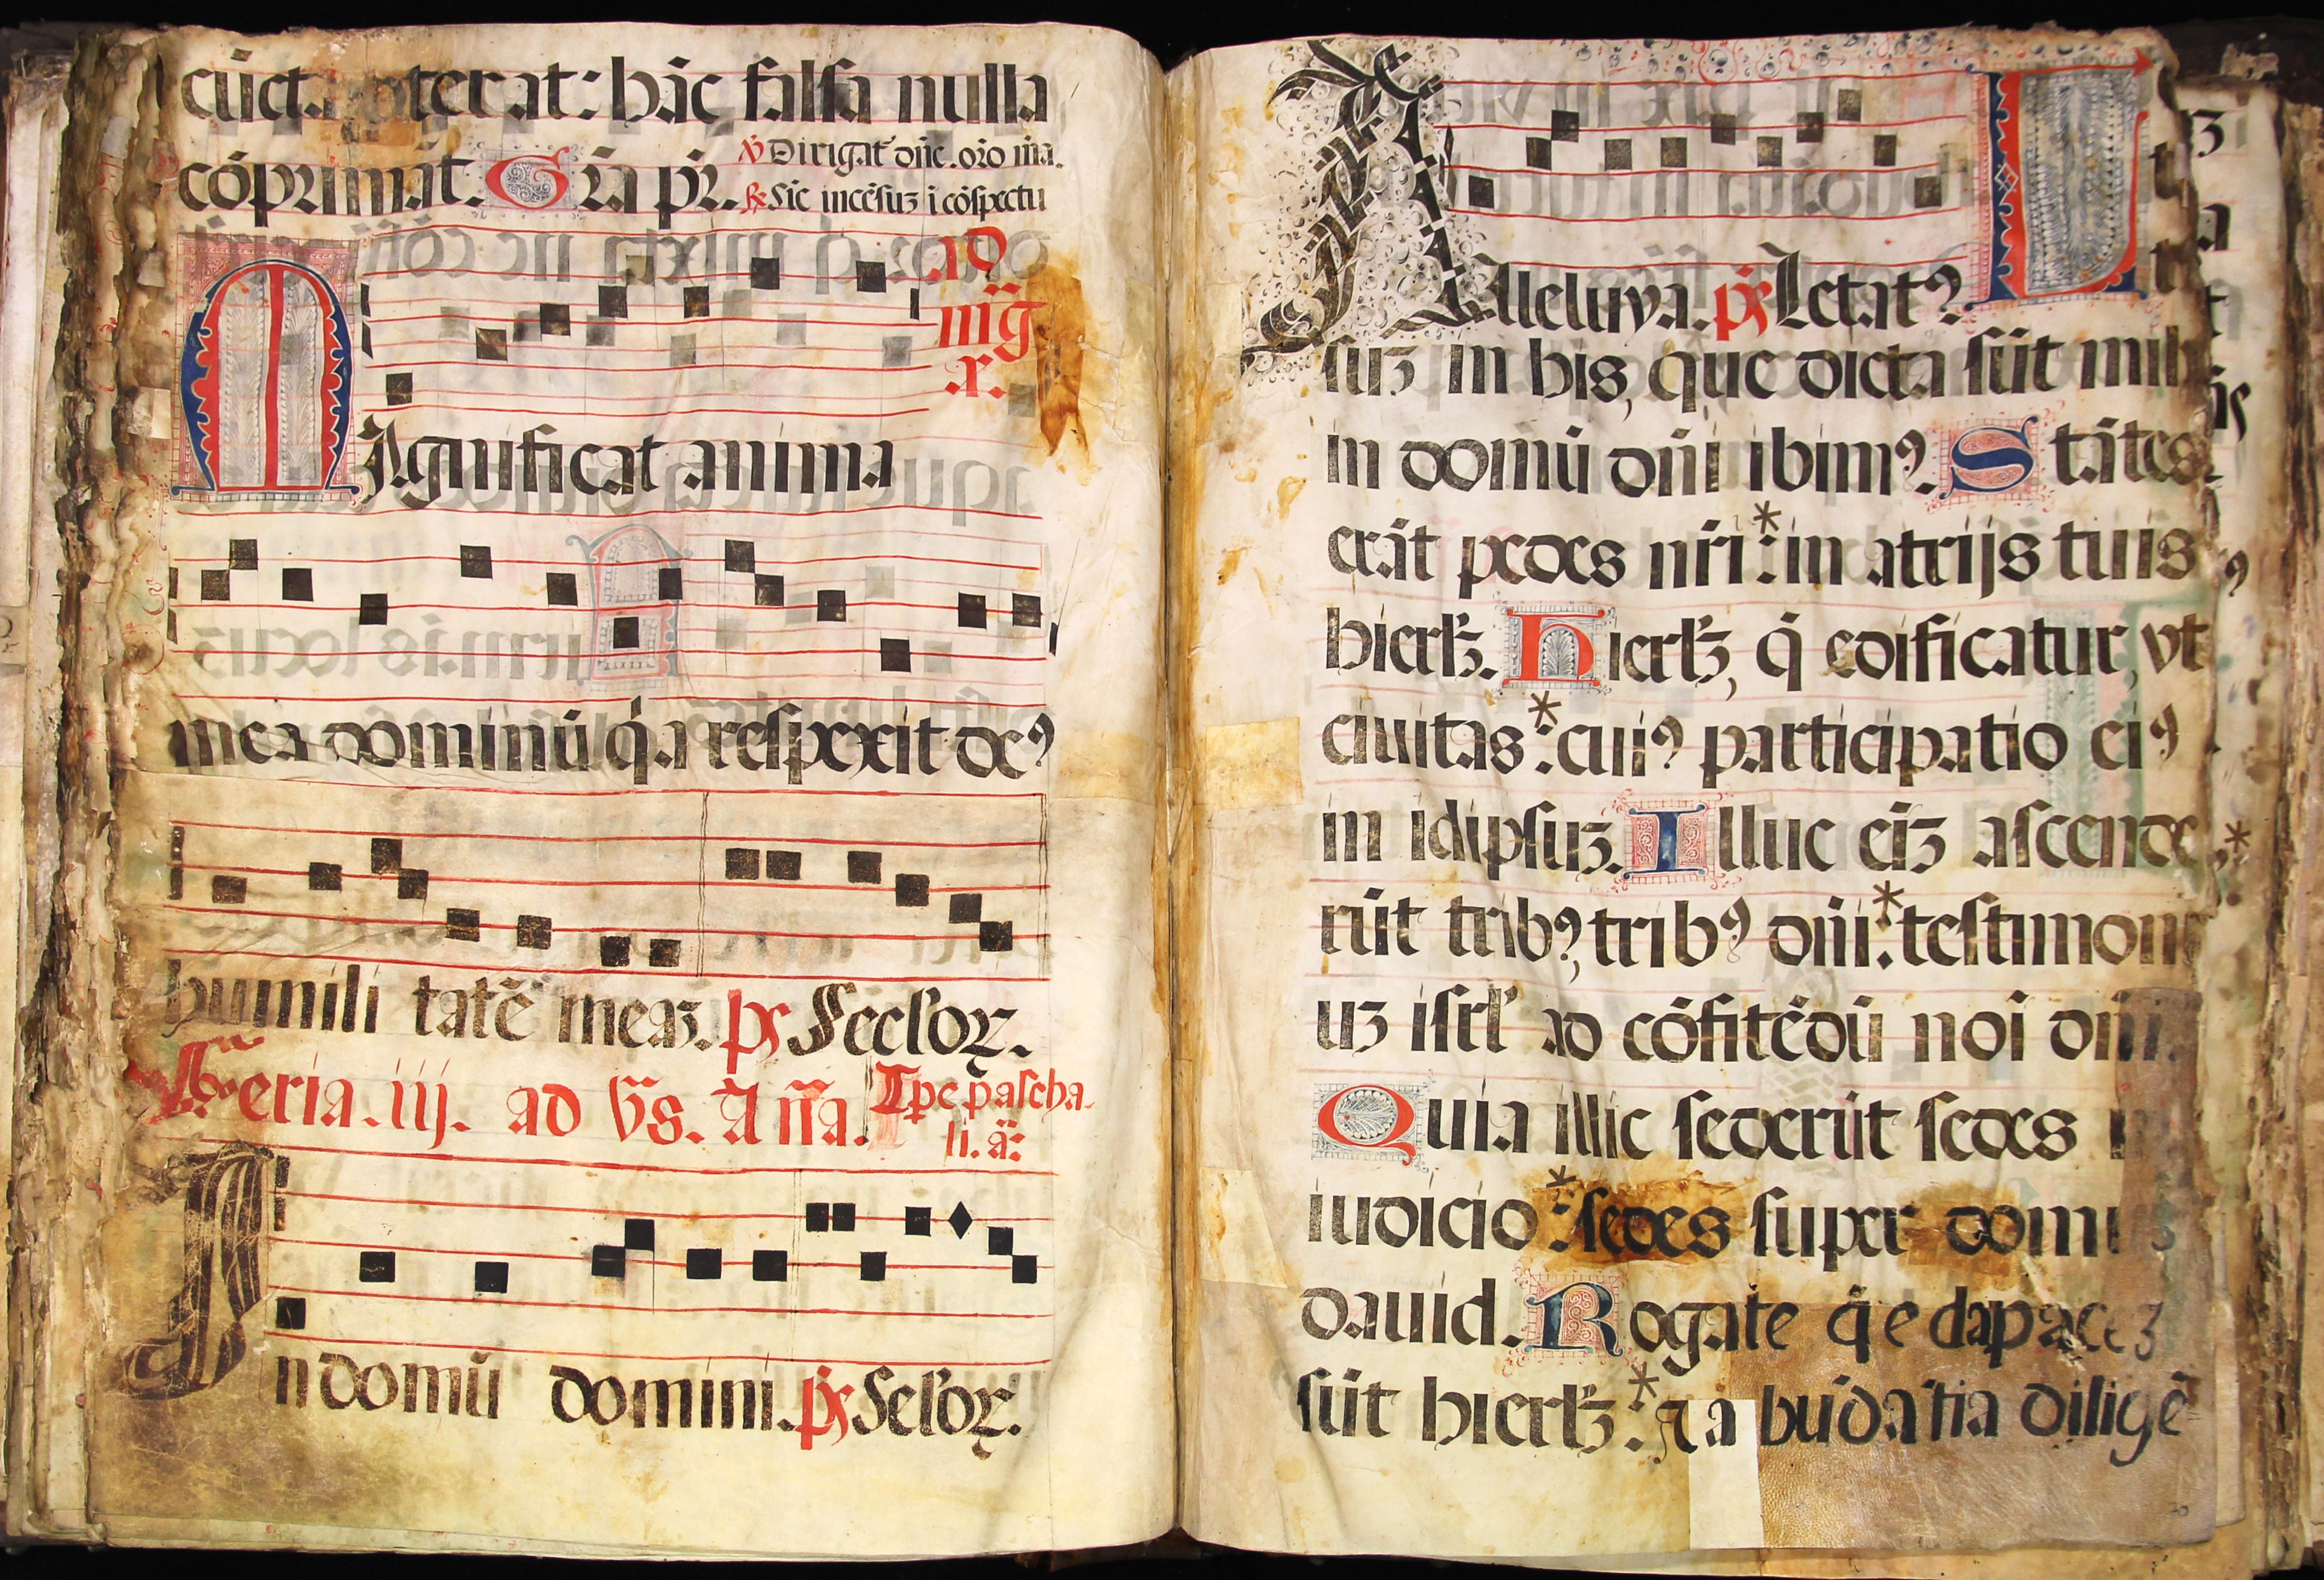 cūct. terat: hāc falsa nulla
cóprimāt. Gr̄a pr̄.
℣ Dirigat᷑ dñe. oro m̄a.
℟ Sic incēsuꝫ i cōspectu
ad
m̄g
x.
MAgnificat anima
mea dominū q̇a respexit deꝰ
humili tatē meaꝫ. ps̄ Seclꝝ.
Feria. iij. ad v̄s. Añā. Tp̄e pascha-
li. ā:
In domū domini. ps̄ Seloꝝ.
Alleluya. ps̄ Letatꝰ L
suꝫ in his, que dicta sūt mih
in domū dñi ibimꝰ. Stātes
erāt pedes nr̄i:* in atrijs tuis
hierlꝫ. Hierlꝫ, q̇ edificatur, vt
ciuitas:* cuiꝰ participatio eiꝰ
in idipsuꝫ. Illuc eīꝫ ascende,
rūt tribꝰ, tribꝰ dñi:* testimoni
uꝫ isrl̄ ad cōfitēdū noī dñi.
Quia illic sederūt sedes
iudicio:* sedes super domū
dauid. Rogate q̇ e dapaceꝫ
sūt hierlꝫ:* ⁊ a būdātia diligē
30